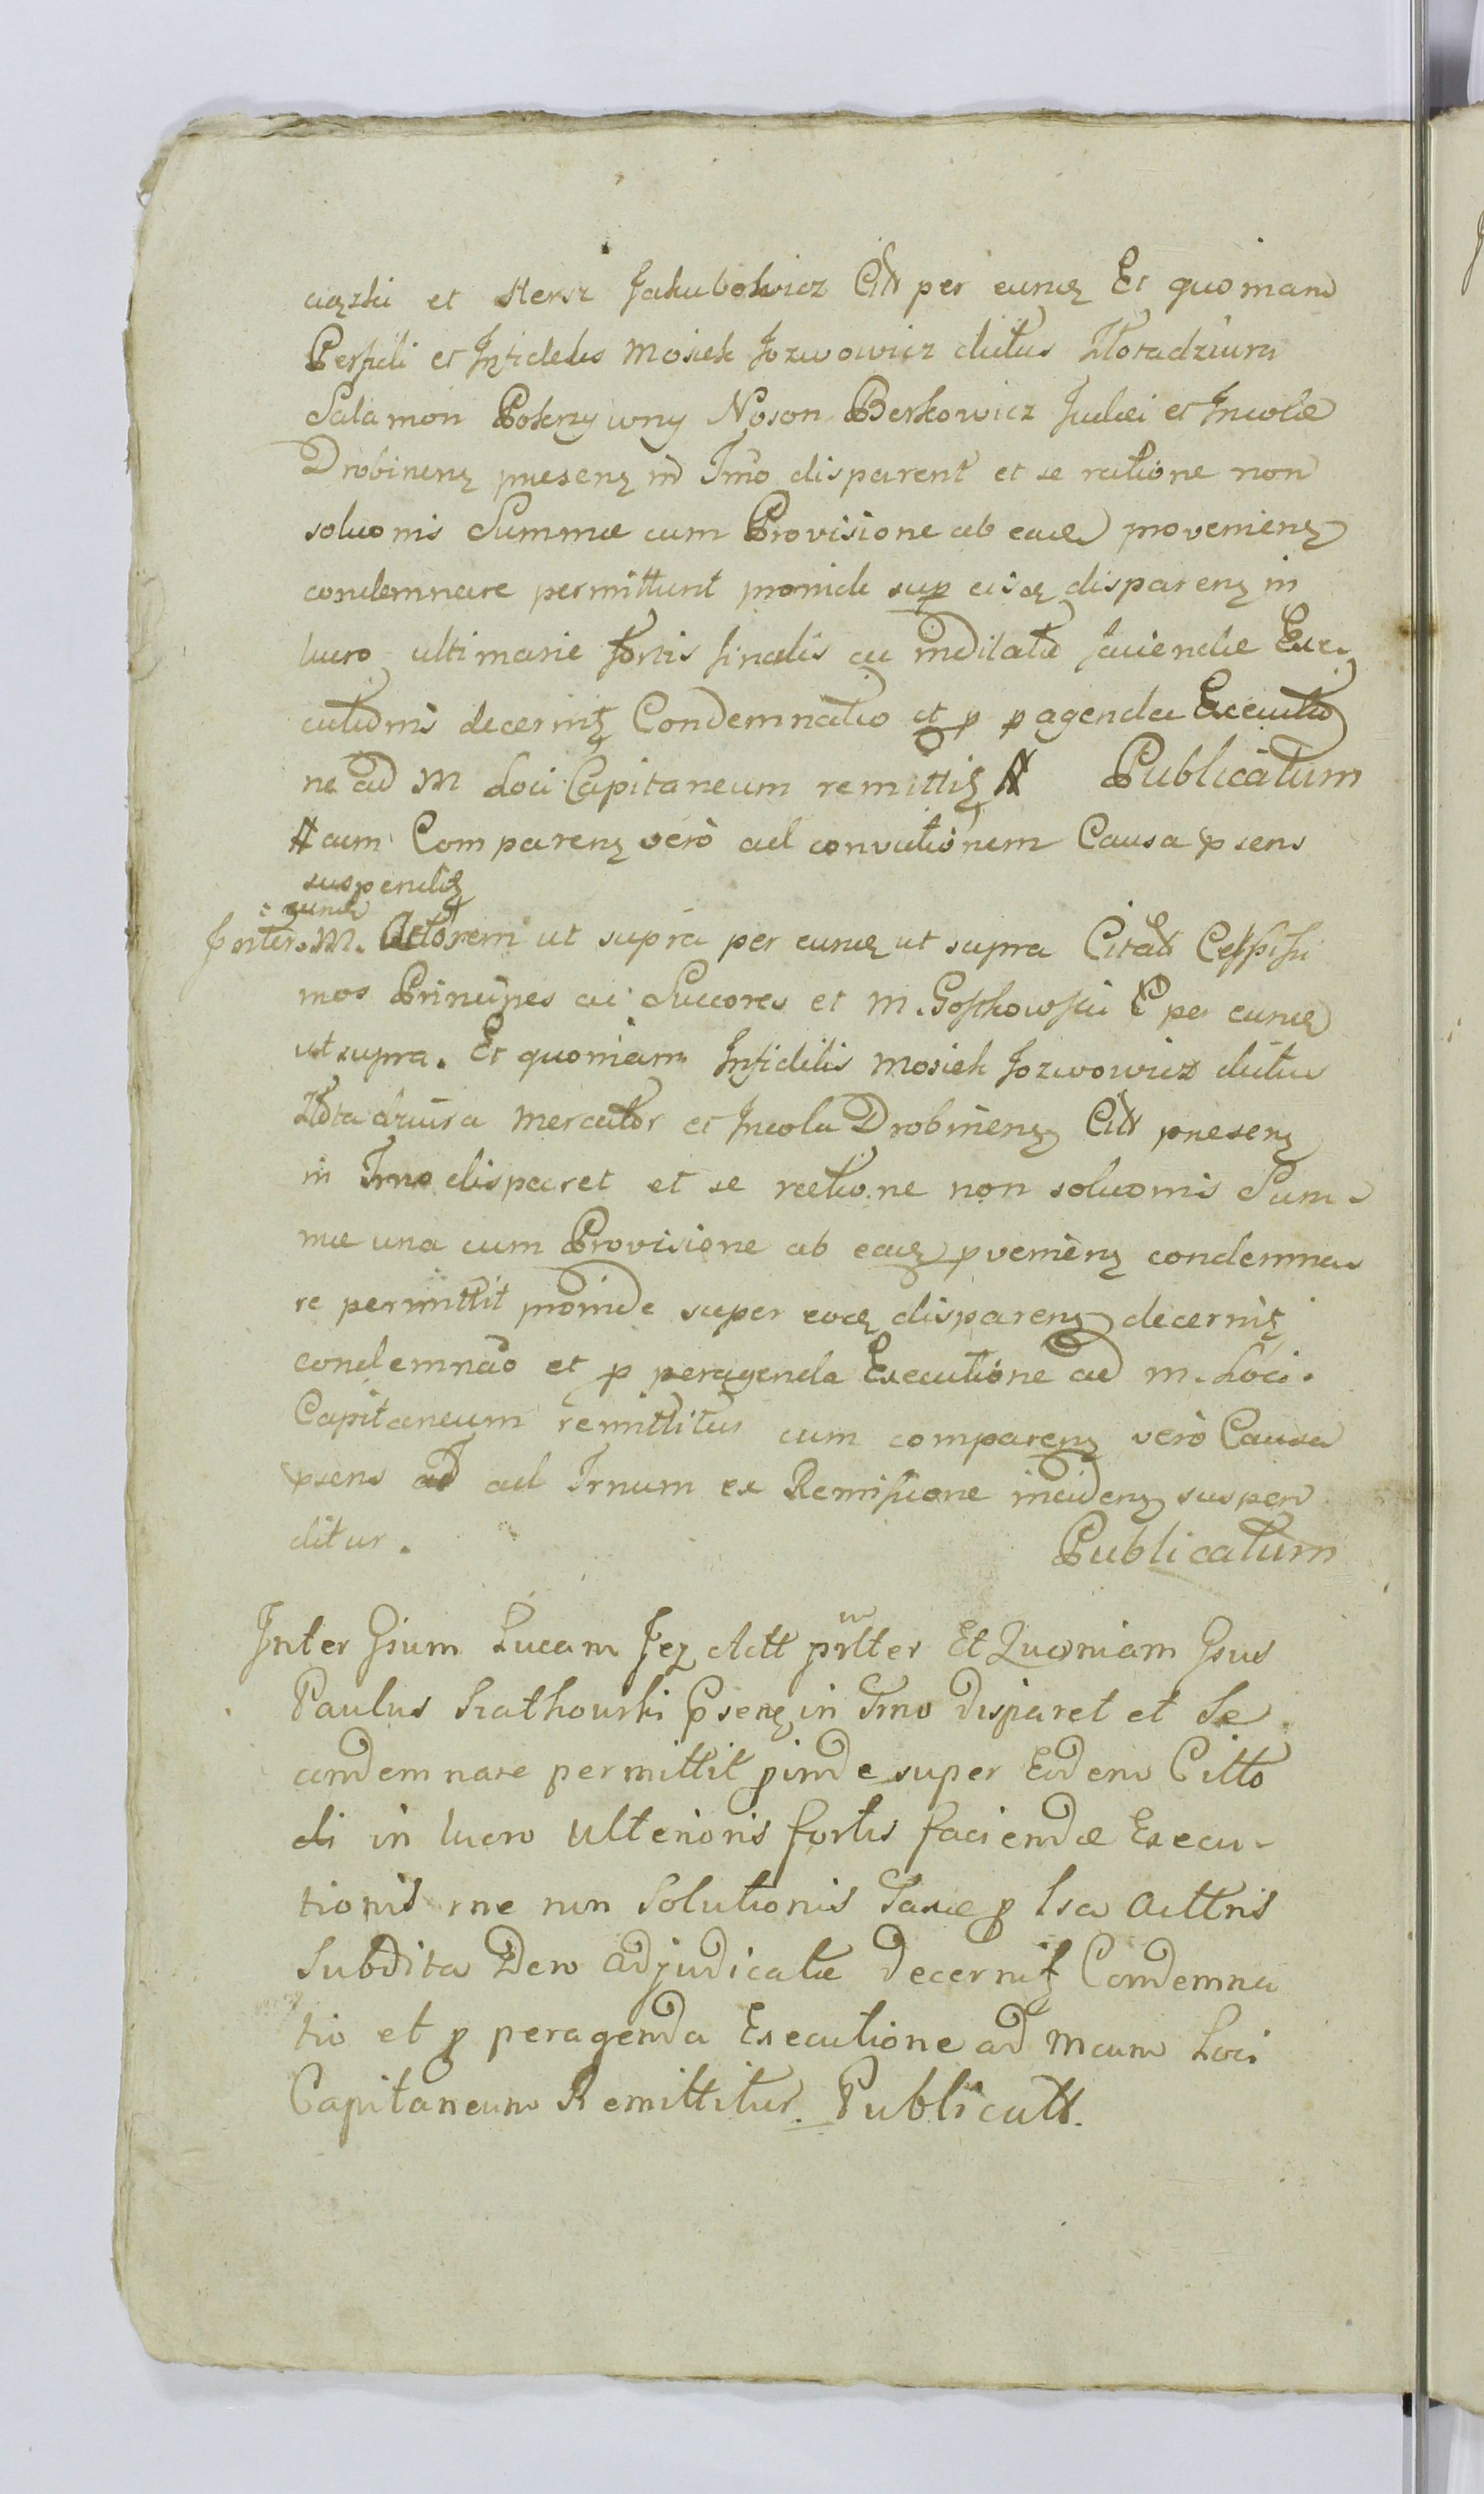 et Hersz Jakubowicz Citt per eund Et quoniam
Perfidi et Infideles Mosiek Jozwowicz dictus Złotadziura
Salamon Pokrzywny Noson Berkowicz Judaei et Incolae
Drobinens praesens in Trno disparent et se ratione non
soluonis Summae cum Provisione ab eade proveniens
condemnare permittunt proinde sup eisd disparens in
lucro ultimarie fortis finalis ac meditatae faciendae Exe-
cutionis decernitz Condemnatio et p pagenda Executio
ne ad M Loci Capitaneum remittitz # Publicatum
# cum Comparens vero ad convictionem Causa psens
suspenditz
Inter eund M. Actorem ut supra per eund ut supra Citatt Celsissi
mos Principes ac Succores et M. Gostkowski C per eund
ut supra. Et quoniam Infidelis Mosiek Jozwowicz dictus
Złotadziura Mercator et Incola Drobinens Citt praesens
in Trno disparet et se ratione non soluonis Sum-
mae una cum Provisione ab eade pveniens condemna
re permittit proinde super eod disparens decernitz
condemnao et p peragenda Executione ad M. Loci.
Capitaneum remittitur cum comparens vero Causa
psens ad ad Trnum ex Remissione incidens suspen
ditur. Publicatum
Inter Gsum Lucam Jez Actt Et Quoniam Gsus
Paulus Psens in Trno disparet et Se
condemnare permittit pinde super Eodem Citto
di in lucro ulterioris fortis faciendae Execu-
tionis rne non Solutionis Taxae p Isa Acttris
Subdita Den adjudicatae decernitz Condemna
tio et p peragenda Executione ad Mcum Loci
Capitaneum Remittitur. Publicatt.